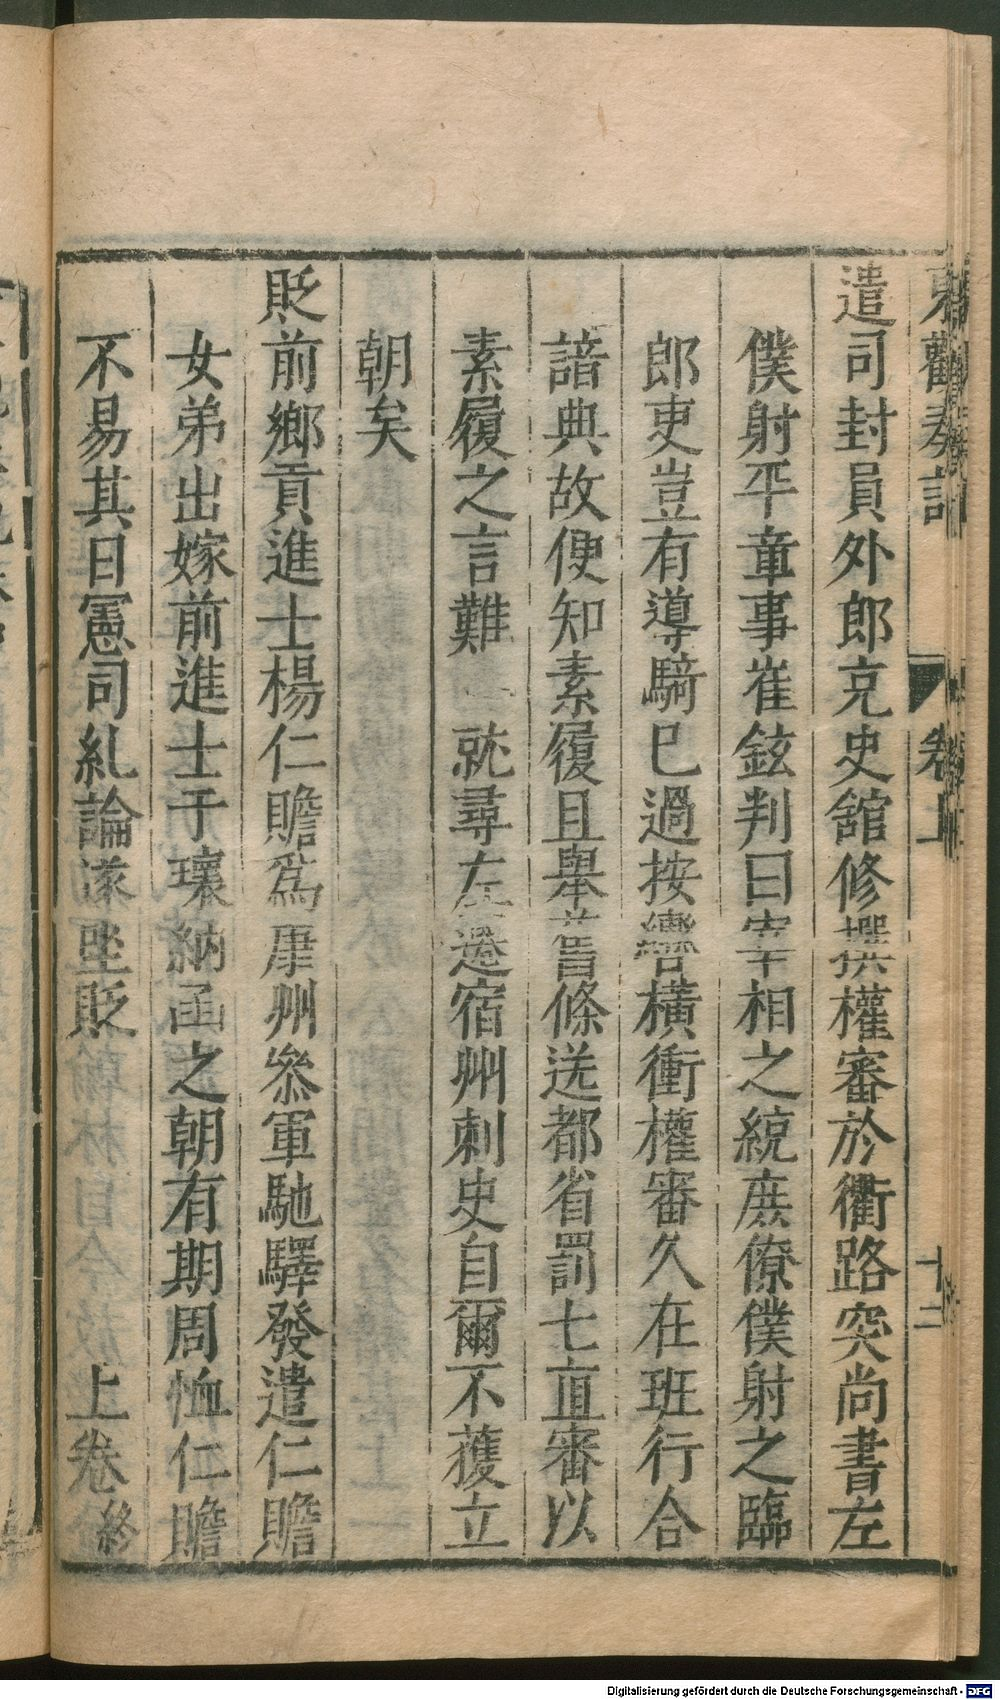 東觀奏記 卷上 十二
遣司封員外郎充史舘修撰權審於衢路突尚書左
僕射平章事崔鉉判曰宰相之統庶僚僕射之臨
郎吏豈有導騎已過按轡橫衝權審久在班行合
諳典故便知素履且舉舊條送都省罰七直審以
素履之言難 就尋左遷宿州刺史自爾不獲立
朝矣
貶前鄉貢進士楊仁贍爲康州叅軍馳驛發遣仁贍
女弟出嫁前進士于瓌納函之朝有期周恤仁贍
不易其日憲司糺論遂坐貶 上卷終
Digitalisierung gefördert durch die Deutsche Forschungsgemeinschaft - DFG